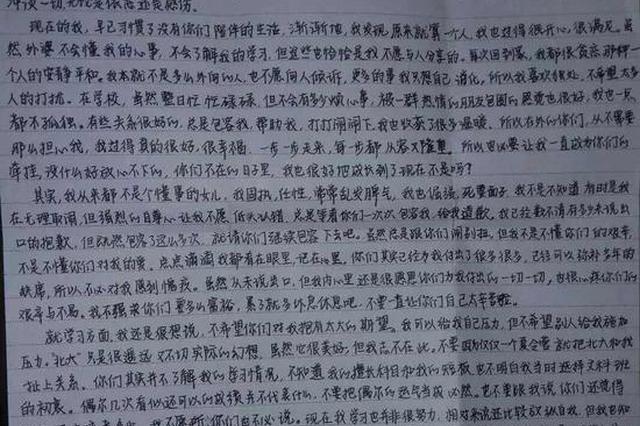 冲淡一切,无论是很思还是感伤。
现在的我,早已习惯了没有你们陪伴的生活,渐渐地,我发现,原来就算一个人,我也过得很开心,很满足。虽
然外婆不会懂我的心事,不会了解我的学习,但这些也恰恰是我不愿与人分享的。每次回到家,我都很贪恋那种一
个人的安静平和。我本就不是多么外向的人,也不愿向人倾诉,更多的事我只想自己消化。所以我喜欢独处,不希望太多
人的打扰。在学校,虽然整日忙忙碌碌,但不会有多少烦心事,被一群热情的朋友包围的感觉也很好,我也一点
都不孤独。有些关系很好的,总是包容我,帮助我,打打闹闹下,我也收获了很多温暖。所以在外的你们,从不需要
那么担心我,我过得真的很好,很幸福,一步一步走来,每一步都从容又隆重。所以也不必要让我一直成为你们的
牵挂,没什么好放心不下的,你们不在的日子里,我也很好地成长到了现在不是吗?
其实,我从来都不是个懂事的女儿,我固执,任性,常常乱发脾气,我也倔强,死要面子,我不是不知道有时是我
在无理取闹,但强烈的自尊心让我不愿低头认错,总是等着你们一次次包容我,给我道歉,我已拉数不清有多少未说出
口的抱歉,但既然包容了这么多次,就请你们继续包容下去吧。虽然总是跟你们闹别扭,但我不是不懂你们的艰辛,
不是不懂你们对我的爱。点点滴滴我都看在眼里,记在心里。你们其实已经为我付出了很多很多,已经可以弥补多年的
缺席,所以,不必对我感到愧疚。虽然从未说出,但我内心里还是很感恩你们为我付出的一切一切,也很心疼你们的
艰辛与不易。我不强求你们要多么富裕,累了就多休息休息吧,不要一直让你们自己太辛苦啦。
就学习方面,我还是很想说,不希望你们对我抱有太大的期望。我可以给我自己压力,但不希望别人给我施加
压力。"北大"只是很遥远,不切实际的幻想,虽然它很美好,但我志不在此。不要因为仅仅一个夏令营就把北大和我
扯上关系。你们其实并不了解我的学习情况,不知道我的擅长科目和我的短板,也不明白我当时选择文科班
的初衷。偶尔几次看似还可以的成绩并不代表什么,不要把偶尔的运气当成必然。也不要跟我说你们还觉得
我不愿听,你们也不必说。现在我学习也并非很努力,相对来说还比较放纵自我,但我也知